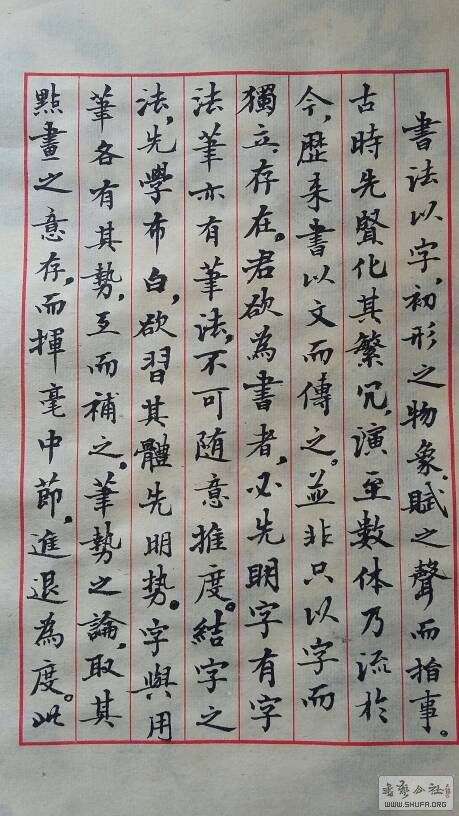 書法以字,初形之物象,賦之聲而指事。
古時先賢化其繁冗,演至數体乃流於
今,歷来書以文而傳之。並非只以字而
獨立存在。君欲為書者,必先明字有字
法筆亦有筆法,不可随意推度。結字之
法,先學布白,欲習其體先明势。字與用
筆各有其勢,互而補之。筆勢之論,取其
點畫之意存,而揮毫中節,進退為度。此
WWW.SHUFA.ORG